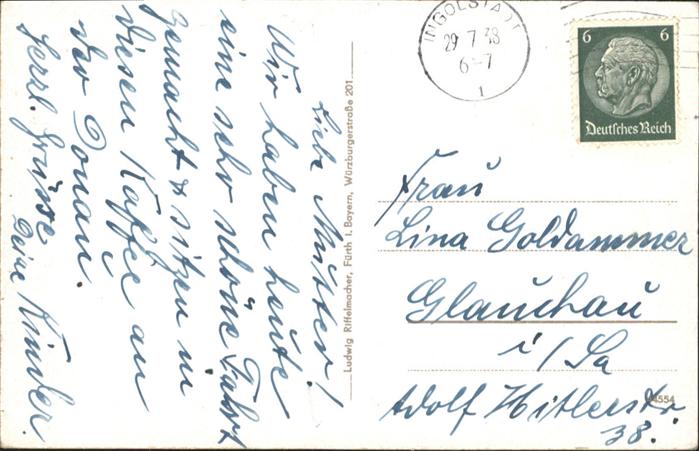 Liebe Mutter!
Wir haben heute
eine sehr schöne Fahrt
gemacht & sitzen in
diesen Kaffee an
der Donau.
Herzl. Grüsse
Deine Kinder.
Ludwig Riffelmacher, Fürth i. Bayern, Würzburgerstraße 201
INGOLSTADT
29 7 38
6-7
1
6 6
Deutsches Reich
Frau
Lina Goldammer
Glauchau
i/Sa
Adolf Hitlerstr
38.
4554